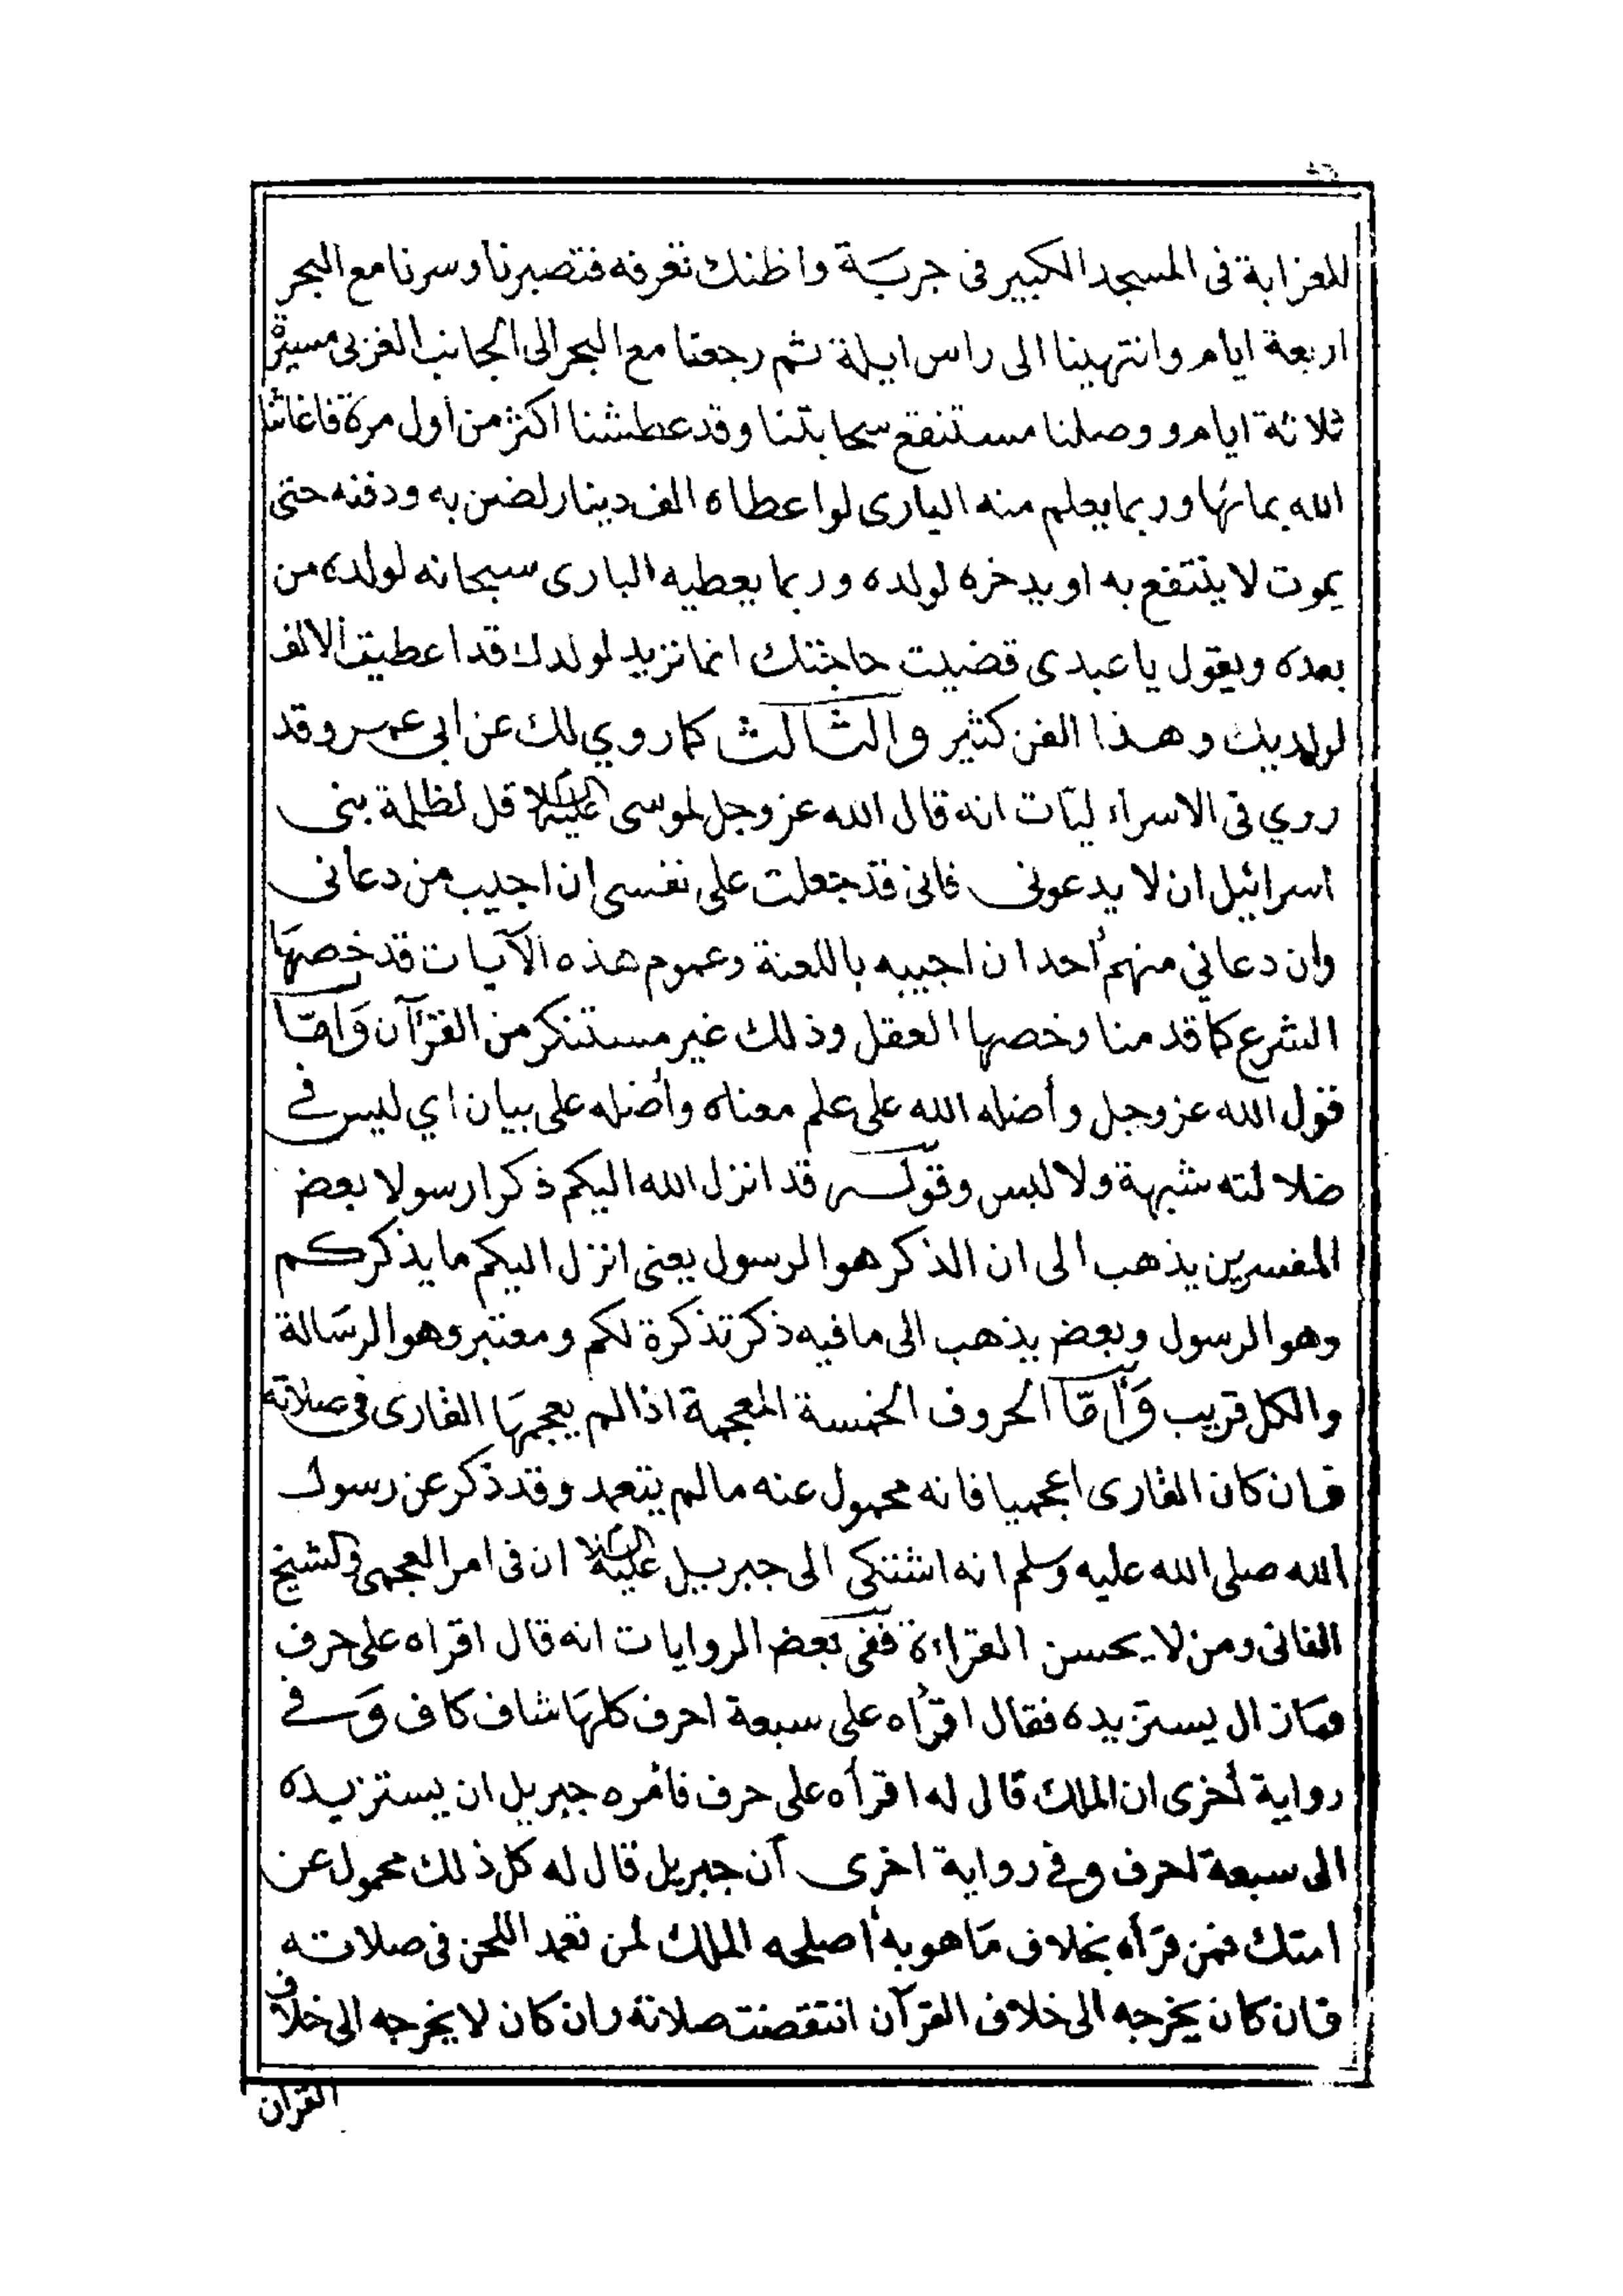 للعزابة فى المسجد الكبير فى جربة واظنك تعرفه فتصبرنا وسرنا مع البحر
اربعة ايام وانتهينا الى راس ايلة ثم رجعنا مع البحر الى الجانب الغربى مسيرة
ثلاثة ايام ووصلنا مستنقع سحابتنا وقد عطشنا اكثر من أول مرة فاغاثنا
الله بمائها وربما يعلم منه البارى لو اعطاه الف دينار لضن به ودفنه حتى
يموت لا ينتفع به او يدخره لولده وربما يعطيه البارى سبحانه لولده من
بعده ويقول يا عبدى قضيت حاجتك انما نزيد لولدك قد اعطيت الالف
لولديك وهذا الفن كثير والثالث كما روي لك عن ابى عمرو قد
روي فى الاسراءليّات انه قال الله عز وجل لموسى عليه السلام قل لظلمة بنى
اسرائيل ان لا يدعونى فانى قد جعلت على نفسى ان اجيب من دعانى
وان دعاني منهم أحد ان اجيبه باللعنة وعموم هذه الآيات قد خصهَا
الشرع كما قدمنا وخصها العقل وذلك غير مستنكر من القرآن وَامّا
قول الله عز وجل وأضله الله على علم معناه وأضله على بيان اي ليس في
ضلالته شبهة ولا لبس وقوله قد انزل الله اليكم ذكرا رسولا بعض
المفسرين يذهب الى ان الذكر هو الرسول يعنى انزل اليكم ما يذكركم
وهو الرسول وبعض يذهب الى ما فيه ذكر تذكرة لكم ومعتبر وهو الرسَالة
والكل قريب وَأمّا الحروف الخمسة المعجمة اذا لم يعجمهَا القارى فى صلاته
فان كان القارى اعجميا فانه محمول عنه ما لم يتعمد وقد ذكر عن رسول
الله صلى الله عليه وسلم انه اشتكى الى جبريل عليه السلام ان فى امر العجمى والشيخ
الفانى ومن لا يحسن القراءة ففى بعض الروايات انه قال اقراه على حرف
فمازال يستزيده فقال اقرأه على سبعة احرف كلهَا شاف كاف وَفي
رواية أخرى ان الملك قال له اقرأه على حرف فأمره جبريل ان يستزيده
الى سبعة احرف وفي رواية اخرى أن جبريل قال له كل ذلك محمول عن
امتك فمن قرأه بخلاف مَا هو به أصلحه الملك لمن تعمد اللحن فى صلاته
فان كان يخرجه الى خلاف القرآن انتقضت صلاته وان كان لا يخرجه الى خلاف
القرآن